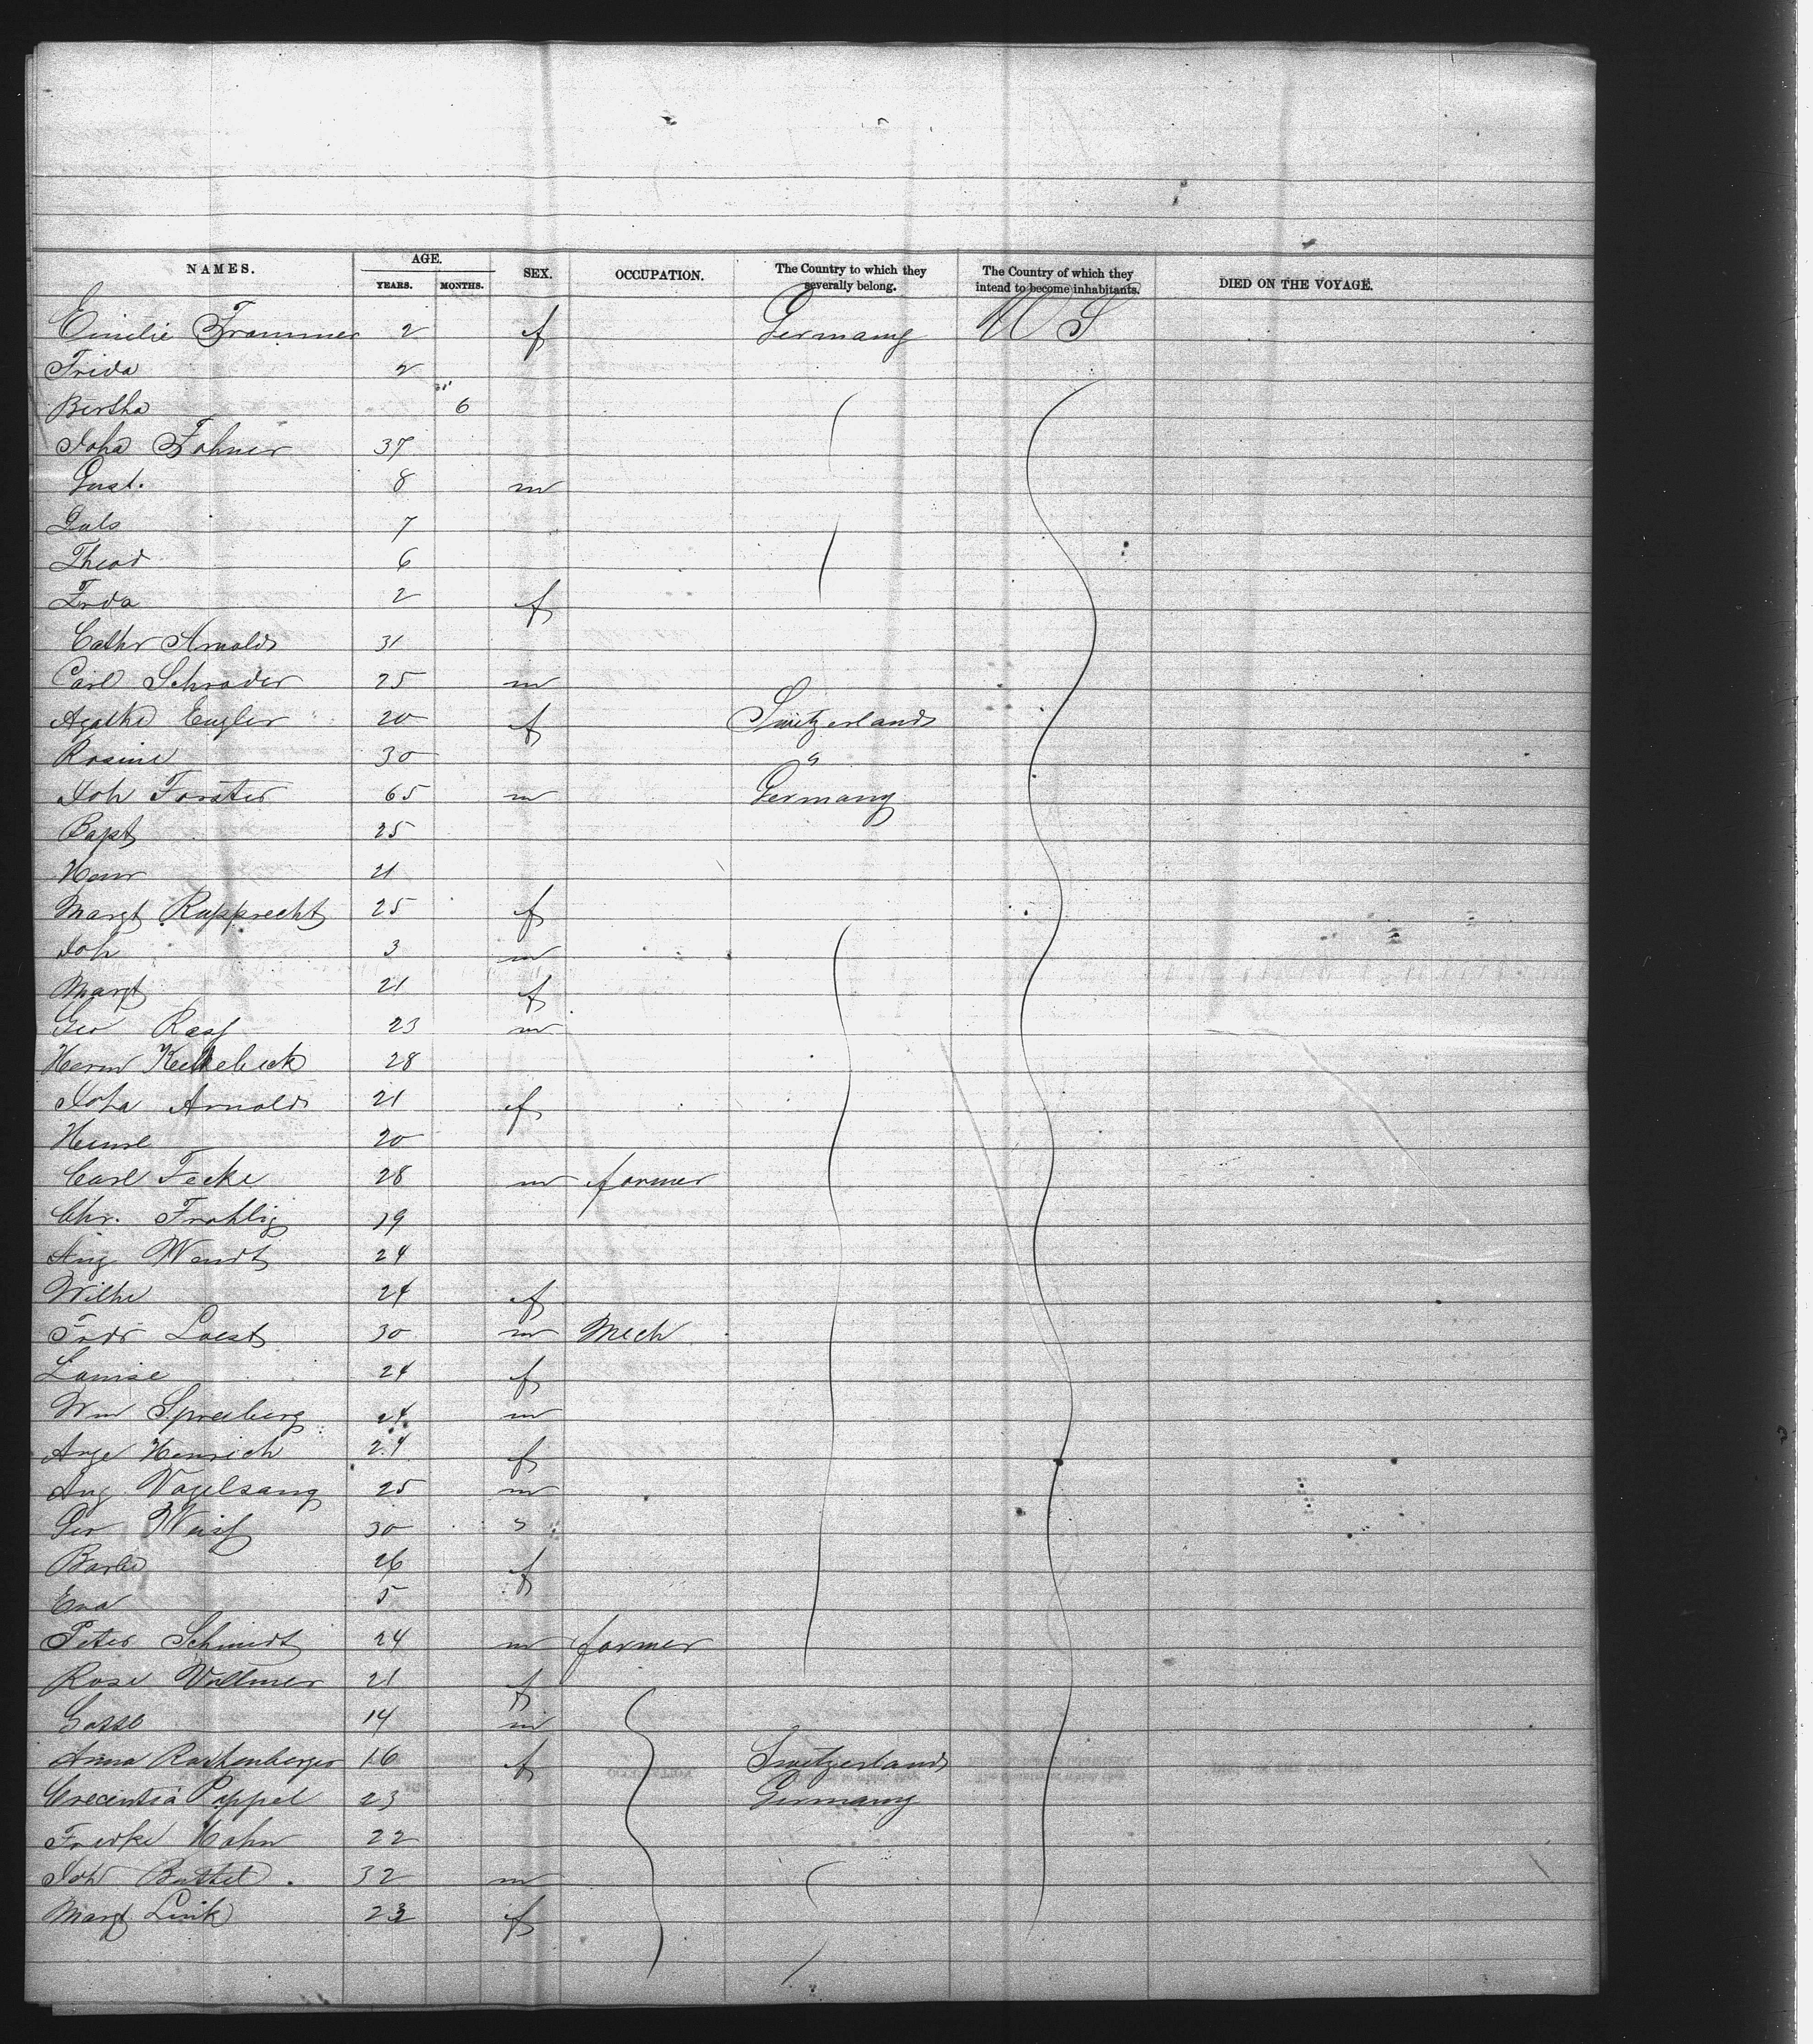 NAMES. AGE. YEARS. MONTHS. SEX. OCCUPATION. The Country to which they severally belong. The Country of which they intend to become inhabitants. DIED ON THE VOYAGE.
Emilie Frommer 2 f Germany US
Frida 2
Bertha 6
Joha Fohner 37
Gust. 8 m
7
Theod 6
2 f
Cathr Arnold 31
Carl Schrader 25 m
Agatha Engler 20 f Switzerland
Rosine 30 "
Joh Forster 65 m Germany
Bapt 25
Henr 21
Margt Rupprecht 25 f
Joh 3 m
Margt 21 f
Geo Rass 23 m
Herm 28
Joha Arnold 21 f
20
Carl Fecke 28 m farmer
Chr. Frohlig 19
Aug Wendt 24
Wilhe 24 f
Fredr Loest 30 m Mech
Louise 24 f
Wm Spreeberg 24 m
Auge Henrich 24 f
Aug Vogelsang 25 m
Geo Weiss 30 "
Barba 26 f
Eva 5
Peter Schmidt 24 m farmer
Rosa Vollmer 21 f
14 m
Anna 16 f Switzerland
Crecentia Poppel 23 Germany
Fredke Hahn 22
Joh Buttel. 32 m
Margt Link f